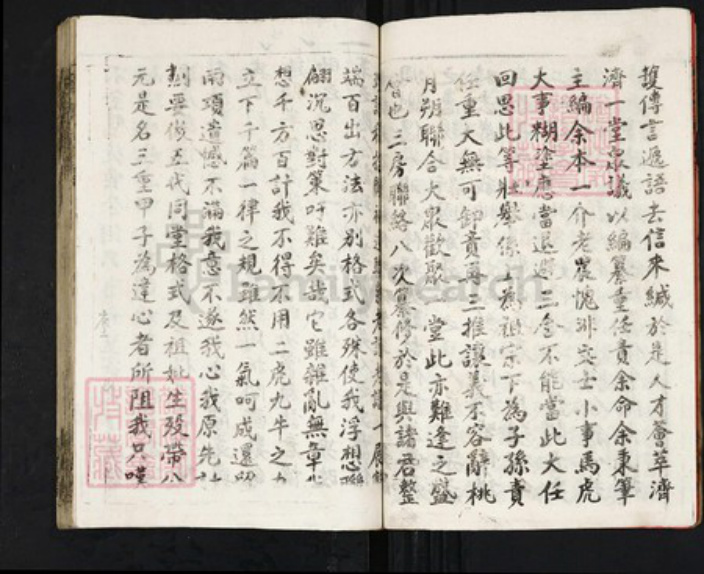 護傳言遞語去信來緘於是人才薈萃濟
濟一堂眾議以編纂重任責余命余秉筆
主編余本一介老農愧非文士小事馬虎
大事糊塗應當退避三舍不能當此大任
回思此等壯舉係上為祖宗下為子孫責
任重大無可卸責再三推讓義不容辭桃
月朔聯合大眾歡聚一堂此亦難逢之盛
會也三房聯絡八次纂修於是與諸君整
端百出方法亦別格式各殊使我浮想聯
翩沉思對策吁難矣哉它雖雜亂無章
想千方百計我不得不用二虎九牛之力
立下千篇一律之規雖然一氣呵成還
兩項遺憾不滿我意不遂我心我原先計
劃要做五代同堂格式及祖妣生歿帶公
元是名三重甲子為達心者所阻我只嘆
FamilySearch